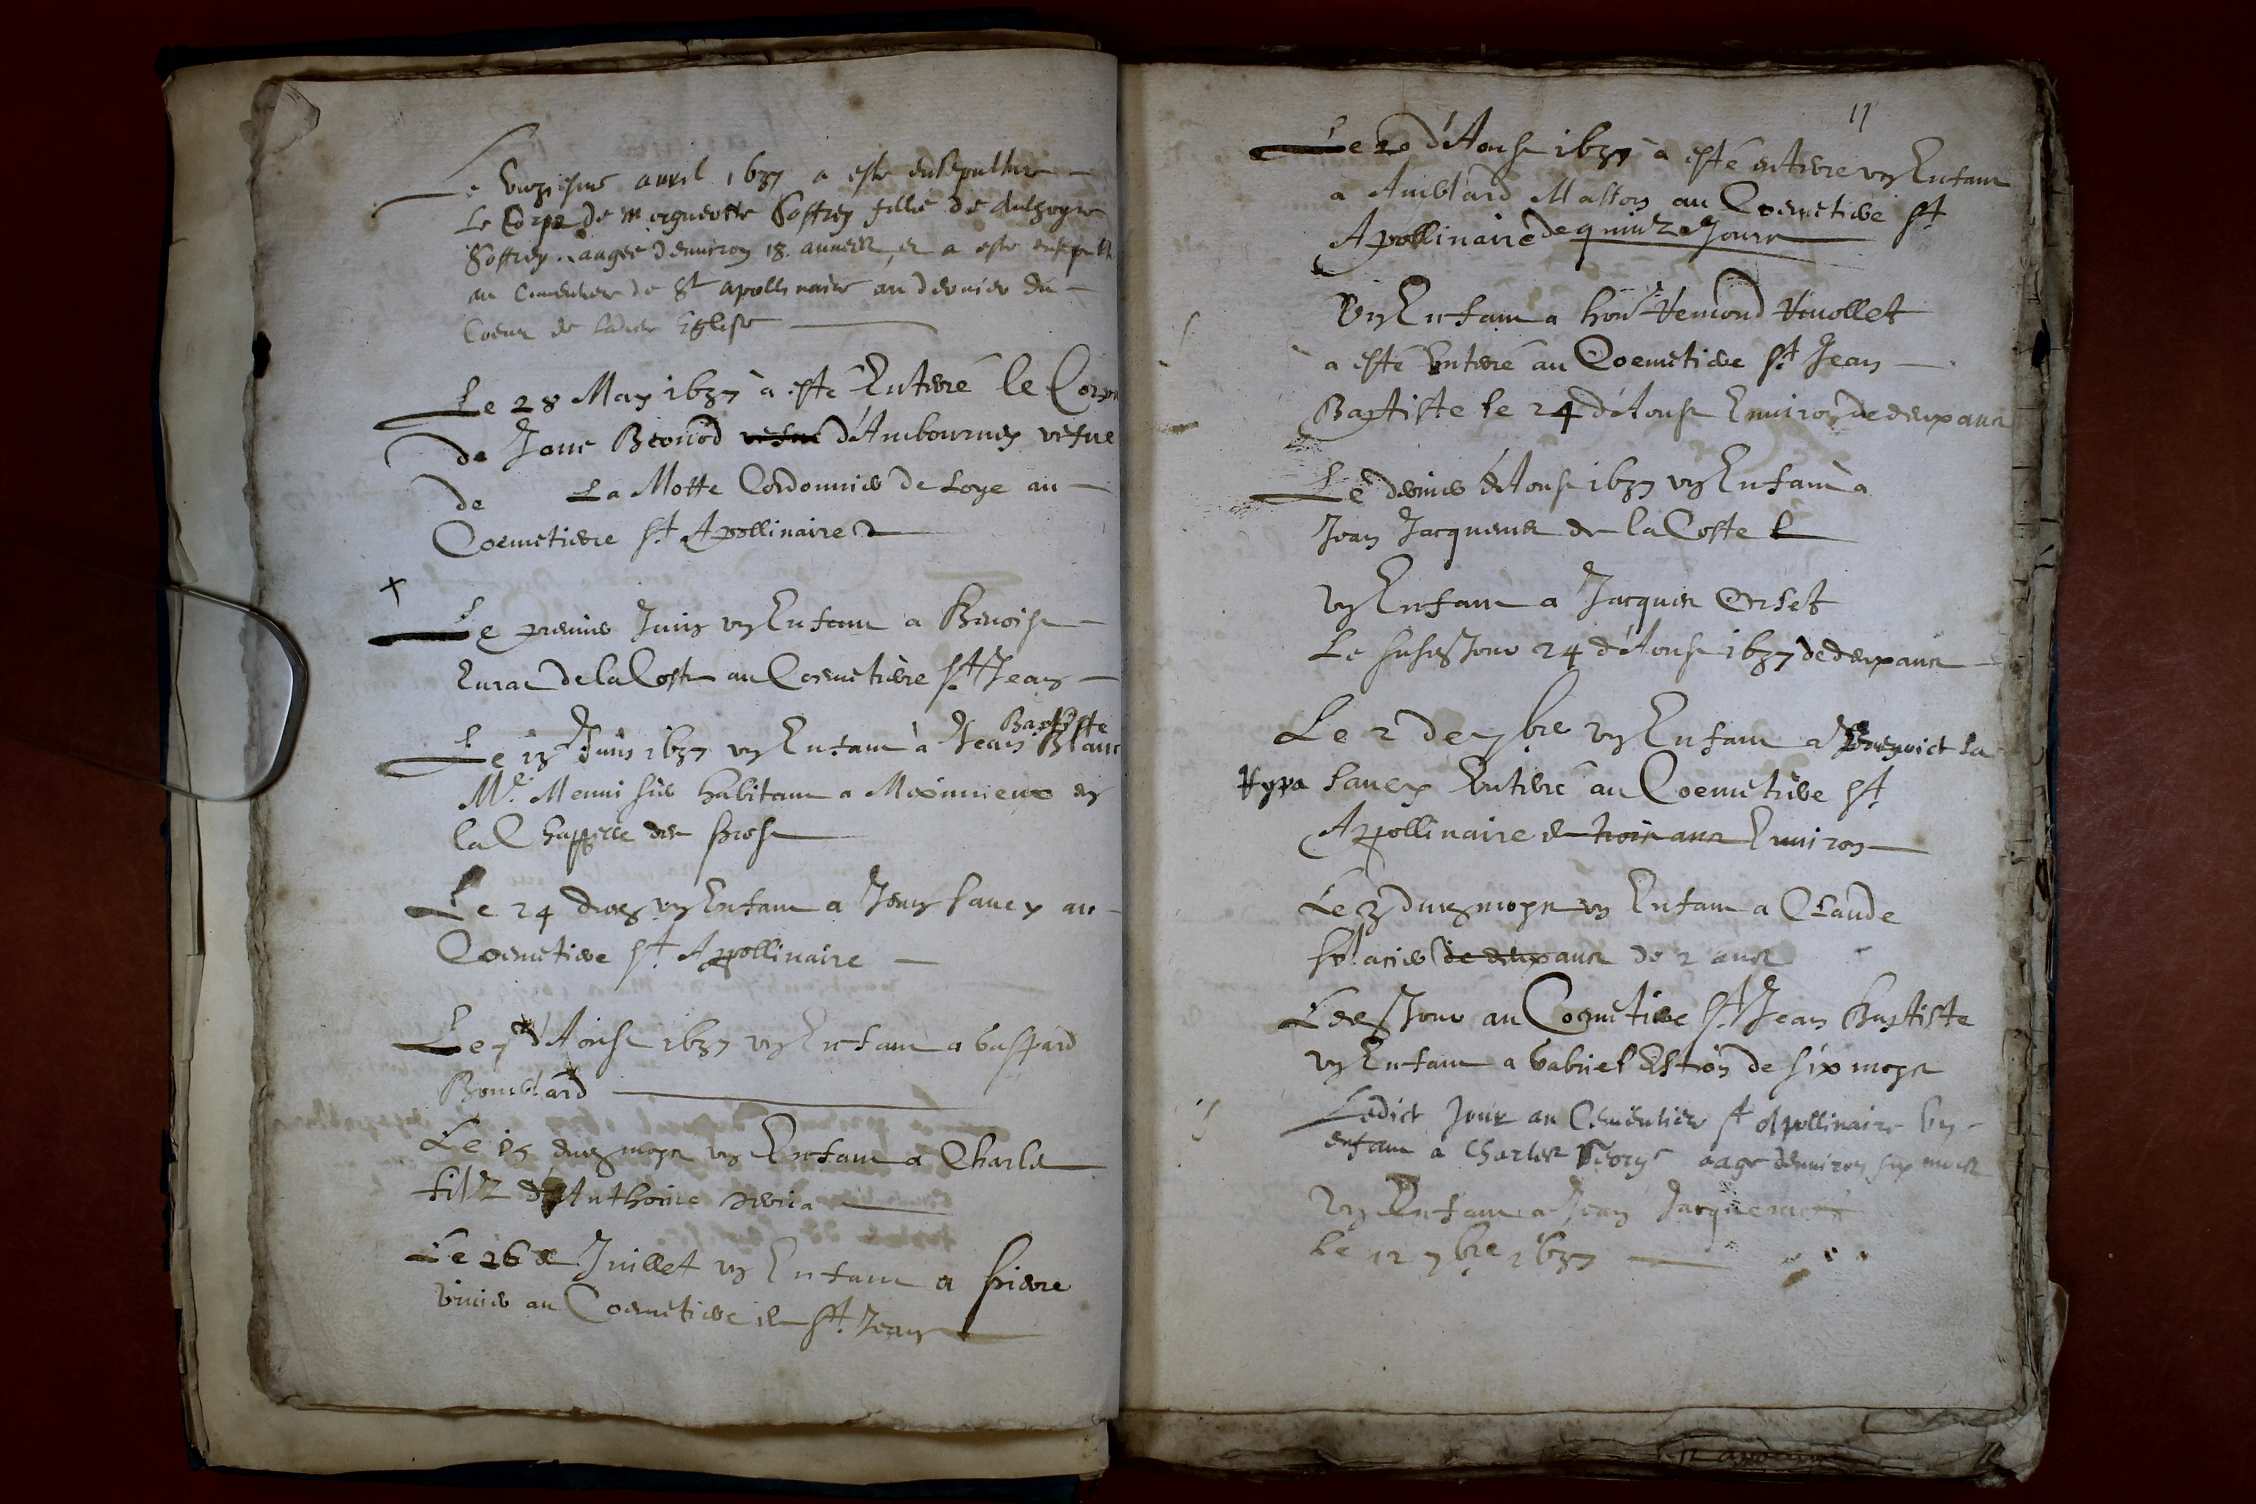 Le vingiesme avril 1637 a este ensepulture
Le Corps de morgueotte Soffrey fille de Anthoyne
Soffrey aagee denviron 18. annees, et a este ensepult
au Cimentiere de St apollinaire au dernier du
Coeur de ladite Eglise
Le 28 May 1637 à esté Enterré le Corps
de Jane Beonod vefue d'Ambournex vefue
de La Motte Cordonnier de Loye au
Coemetiere St Apollinaire
Le premier Juing vng Enfant a Benoist
de la Coste au Coemetière St Jean
Baptiste
Le 13 Juin 1637 vng Enfant à Jean Blanc
Me. Menuisier habitant a Meximieux en
la Chappelle des
Le 24 dudit vng Enfant a Jean Sauey au
Coemetiere St Apollinaire
Le 7 d'Aoust 1637 vng Enfant a Gaspard
Bouvlard
Le 15 dudit moys vng Enfant a Charles
filz d'Anthoine
Le 26 de Juillet vng Enfant a Pierre
au Coemetiere de St. Jean
11
Le 20 d'Aoust 1637 à esté enterre vng Enfant
a Amblard Matton au Coemetiere St
Apollinaire de quinze Jours
Vng Enfant a hon Hemond
à esté Enterré au Coemetiere St Jean
Baptiste le 24 d'Aoust Environ de deux ans
Le dernier d'Aoust 1637 vng Enfant à
Jean Jacquemet de la Coste
vng Enfant a Jacques Orset
Le susdit Jour 24 d'Aoust 1637 de deux ans
Le 2 de 7bre vng Enfant a Benoict la
Sauey Enterré au Coemetière St
Appollinaire de trois ans Environ
Le 3 dudit moys vng Enfant a Claude
de deux ans de 2 ans
Ledit Jour au Coemetiere St Jean Baptiste
vng Enfant a Gabriel Estion de six moys
Ledict Jour au Cimentiere St Apollinaire vng
enfant a Charles aage denviron six mois
Vng Enfant a Jean Jacquemet
Le 12 7bre 1637